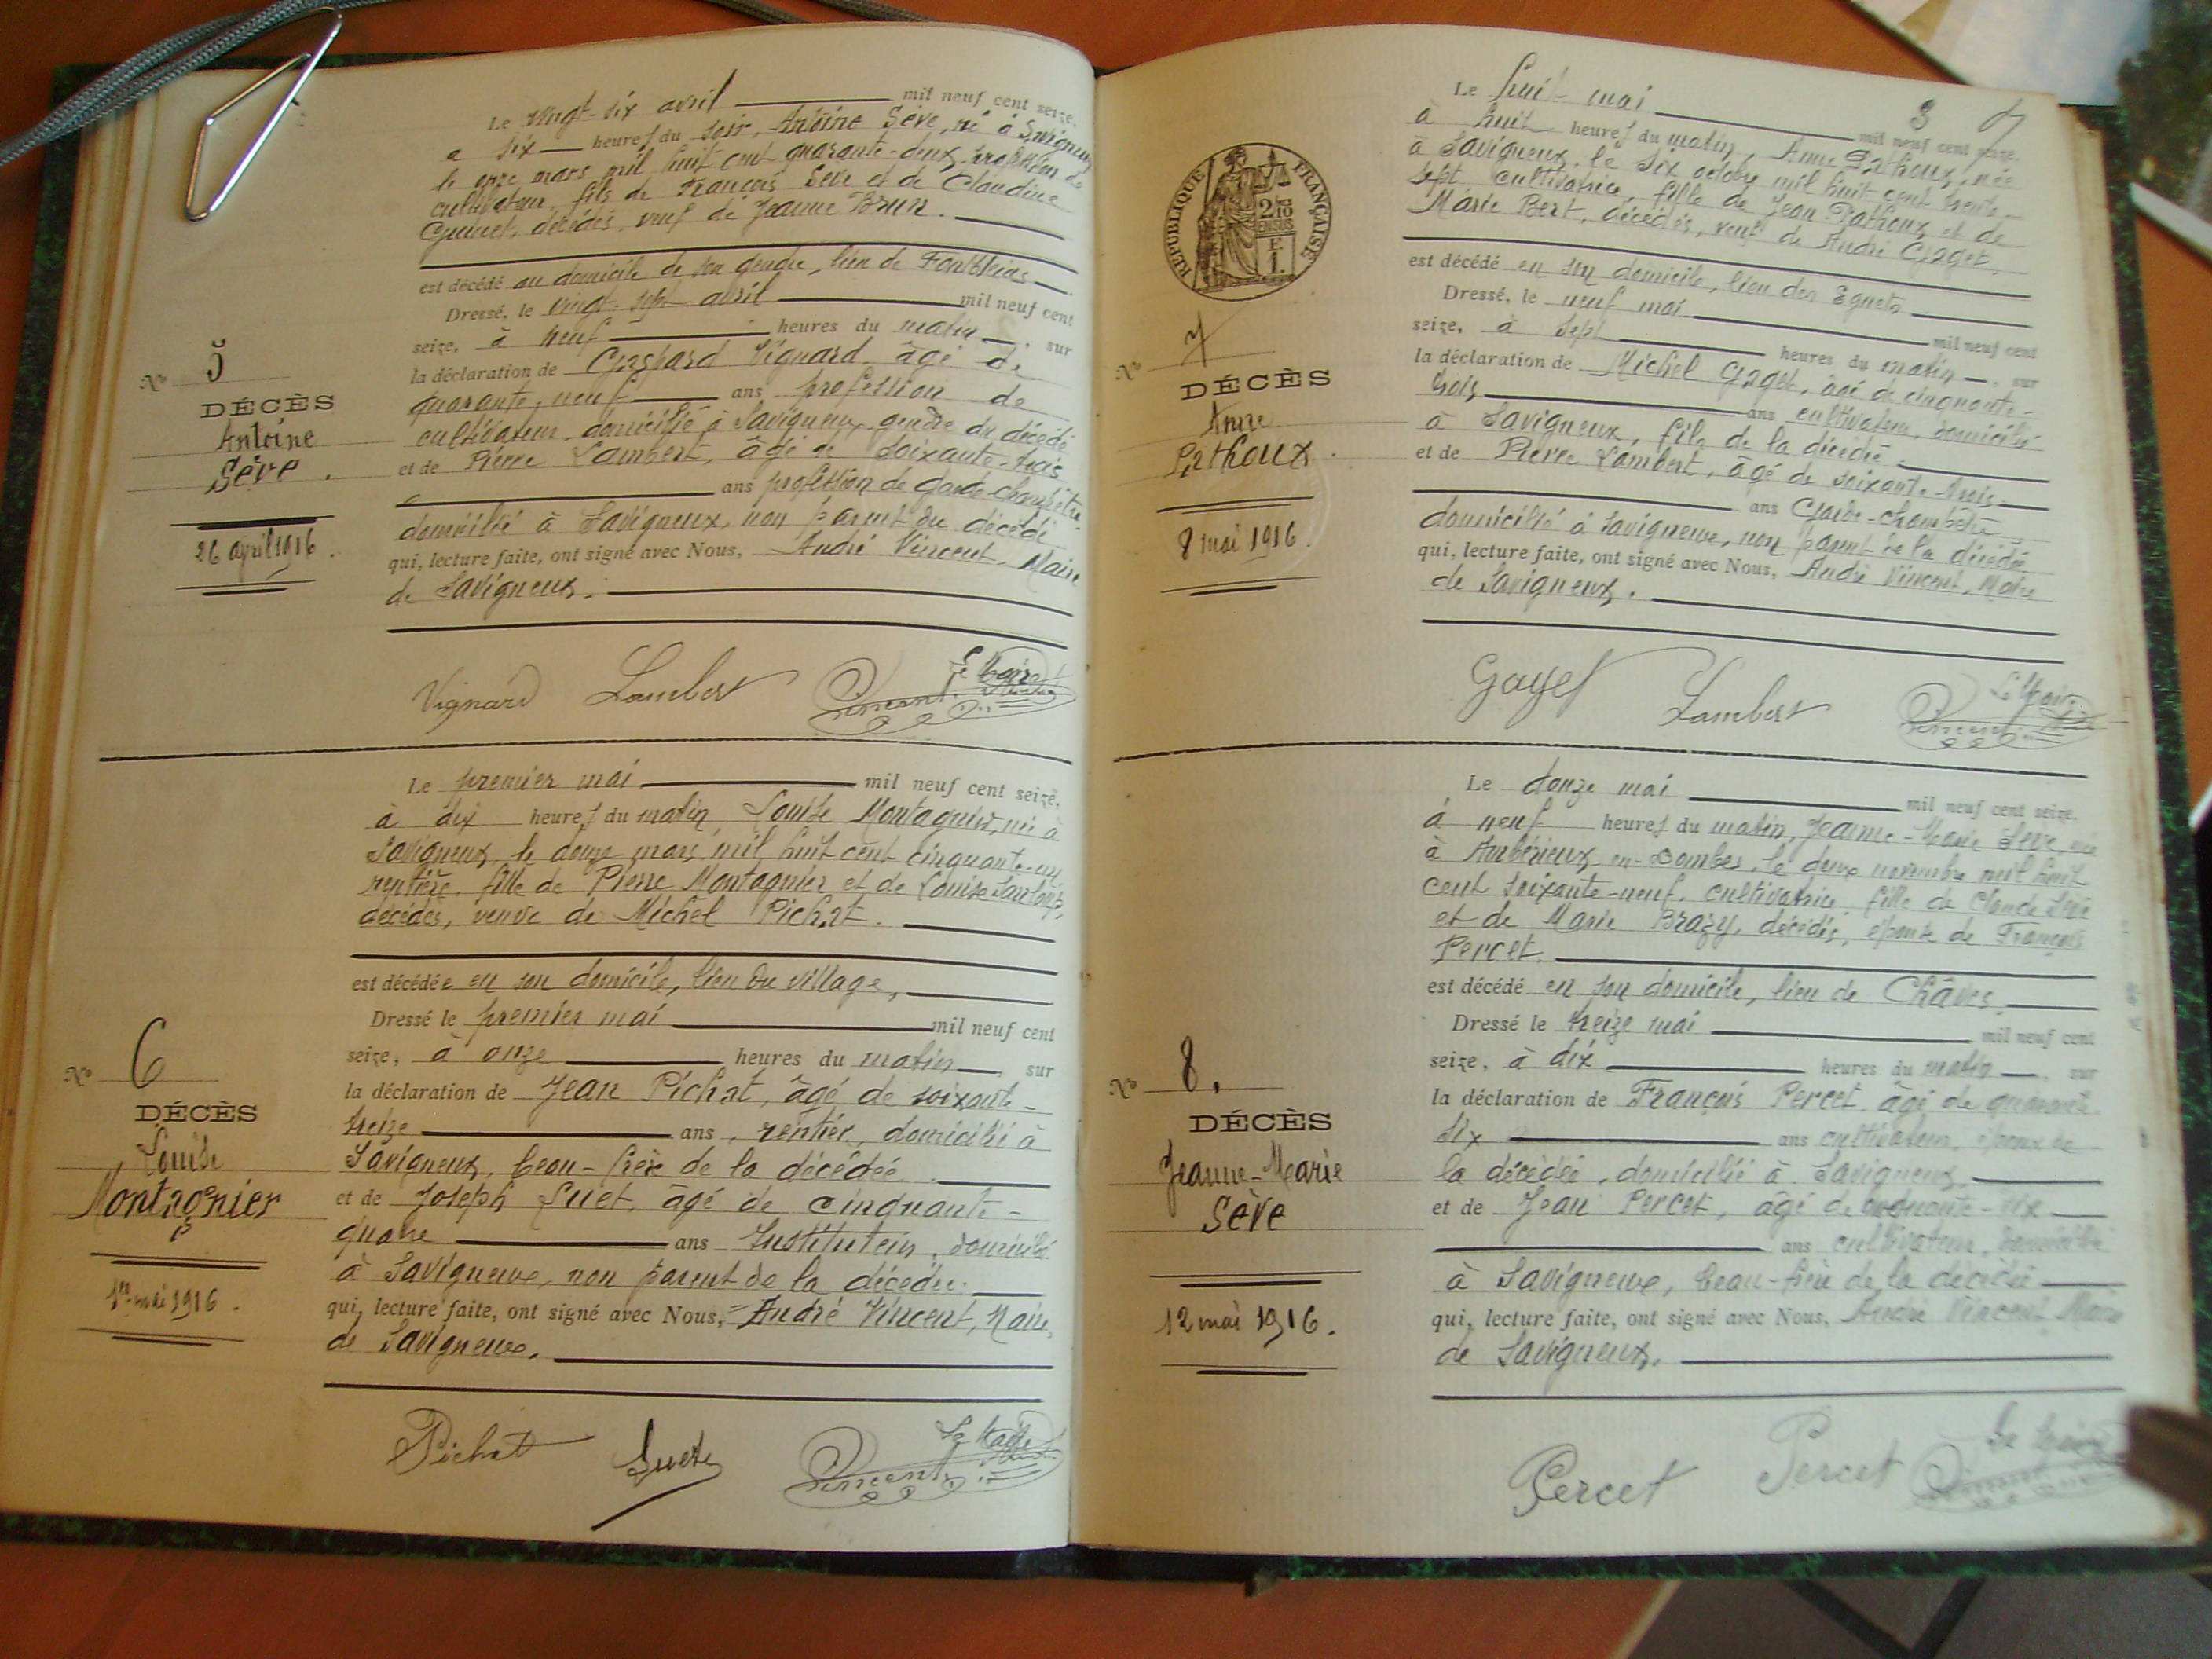 Le vingt-six avril mil neuf cent seize,
à six heures du soir, Antoine Sève, né à Savigneux
le onze mars mil huit cent quarante-deux, profession de
cultivateur, fils de François Sève et de Claudine
décédés, veuf de Jeanne Brun.
est décédé au domicile de son gendre, lieu de
Dressé, le vingt-sept avril mil neuf cent
seize, à neuf heures du matin, sur
la déclaration de Gaspard Vignard, âgé de
quarante-neuf ans profession de
cultivateur domicilié à Savigneux gendre du décédé
et de Pierre Lambert, âgé de soixante-trois
ans profession de garde-champêtre
domicilié à Savigneux, non parent du décédé
qui, lecture faite, ont signé avec Nous, André Vincent, Maire
de Savigneux.
No 5
DÉCÈS
Antoine
Sève.
26 avril 1916.
Vignard Lambert Le Maire
Vincent
Le premier mai mil neuf cent seize,
à dix heures du matin, Louise Montagnier, née à
Savigneux, le douze mars mil huit cent cinquante-un
rentière, fille de Pierre Montagnier et de Louise
décédés, veuve de Michel Pichat.
est décédée en son domicile, lieu du village,
Dressé le premier mai mil neuf cent
seize, à onze heures du matin, sur
la déclaration de Jean Pichat, âgé de soixante-
treize ans, rentier, domicilié à
Savigneux, beau-frère de la décédée
et de Joseph Suet, âgé de cinquante-
quatre ans Instituteur, domicilié
à Savigneux, non parent de la décédée.
qui, lecture faite, ont signé avec Nous, André Vincent, Maire
de Savigneux.
No 6
DÉCÈS
Louise
Montagnier
1er mai 1916.
Pichat Suet Le Maire
Vincent
3
Le huit mai mil neuf cent seize,
à huit heures du matin, Anne Pathoux, née
à Savigneux, le six octobre mil huit cent trente-
sept, cultivatrice, fille de Jean Pathoux et de
Marie Bert, décédés, veuf de André Gaget,
est décédé en son domicile, lieu des Eguets
Dressé, le neuf mai mil neuf cent
seize, à sept heures du matin, sur
la déclaration de Michel Gaget, âgé de cinquante-
trois ans cultivateur, domicilié
à Savigneux, fils de la décédée
et de Pierre Lambert, âgé de soixante-trois
ans Garde-champêtre
domicilié à Savigneux, non parent de la décédée
qui, lecture faite, ont signé avec Nous, André Vincent, Maire
de Savigneux.
RÉPUBLIQUE FRANÇAISE
2/10
EN SUS
F.
1.
No 7
DÉCÈS
Anne
Pathoux.
8 mai 1916.
Gaget Lambert Le Maire
Vincent
Le douze mai mil neuf cent seize,
à neuf heures du matin, Jeanne-Marie Sève, née
à Ambérieux-en-Dombes, le deux novembre mil huit
cent soixante-neuf, cultivatrice, fille de Claude Sève
et de Marie Brazy, décédés, épouse de François
Percet.
est décédé en son domicile, lieu de Châves
Dressé le treize mai mil neuf cent
seize, à dix heures du matin, sur
la déclaration de François Percet, âgé de quarante
six ans cultivateur, époux de
la décédée, domicilié à Savigneux,
et de Jean Percet, âgé de
ans cultivateur, domicilié
à Savigneux, beau-frère de la décédée
qui, lecture faite, ont signé avec Nous, André Vincent Maire
de Savigneux.
No 8.
DÉCÈS
Jeanne-Marie
Sève
12 mai 1916.
Percet Percet Le Maire
Vincent